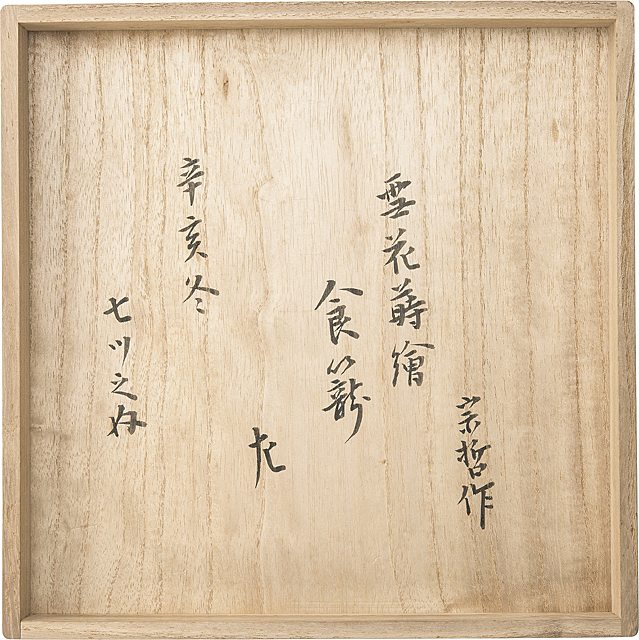 宗哲作
雪花蒔繪
食籠
左
辛亥冬
七 之